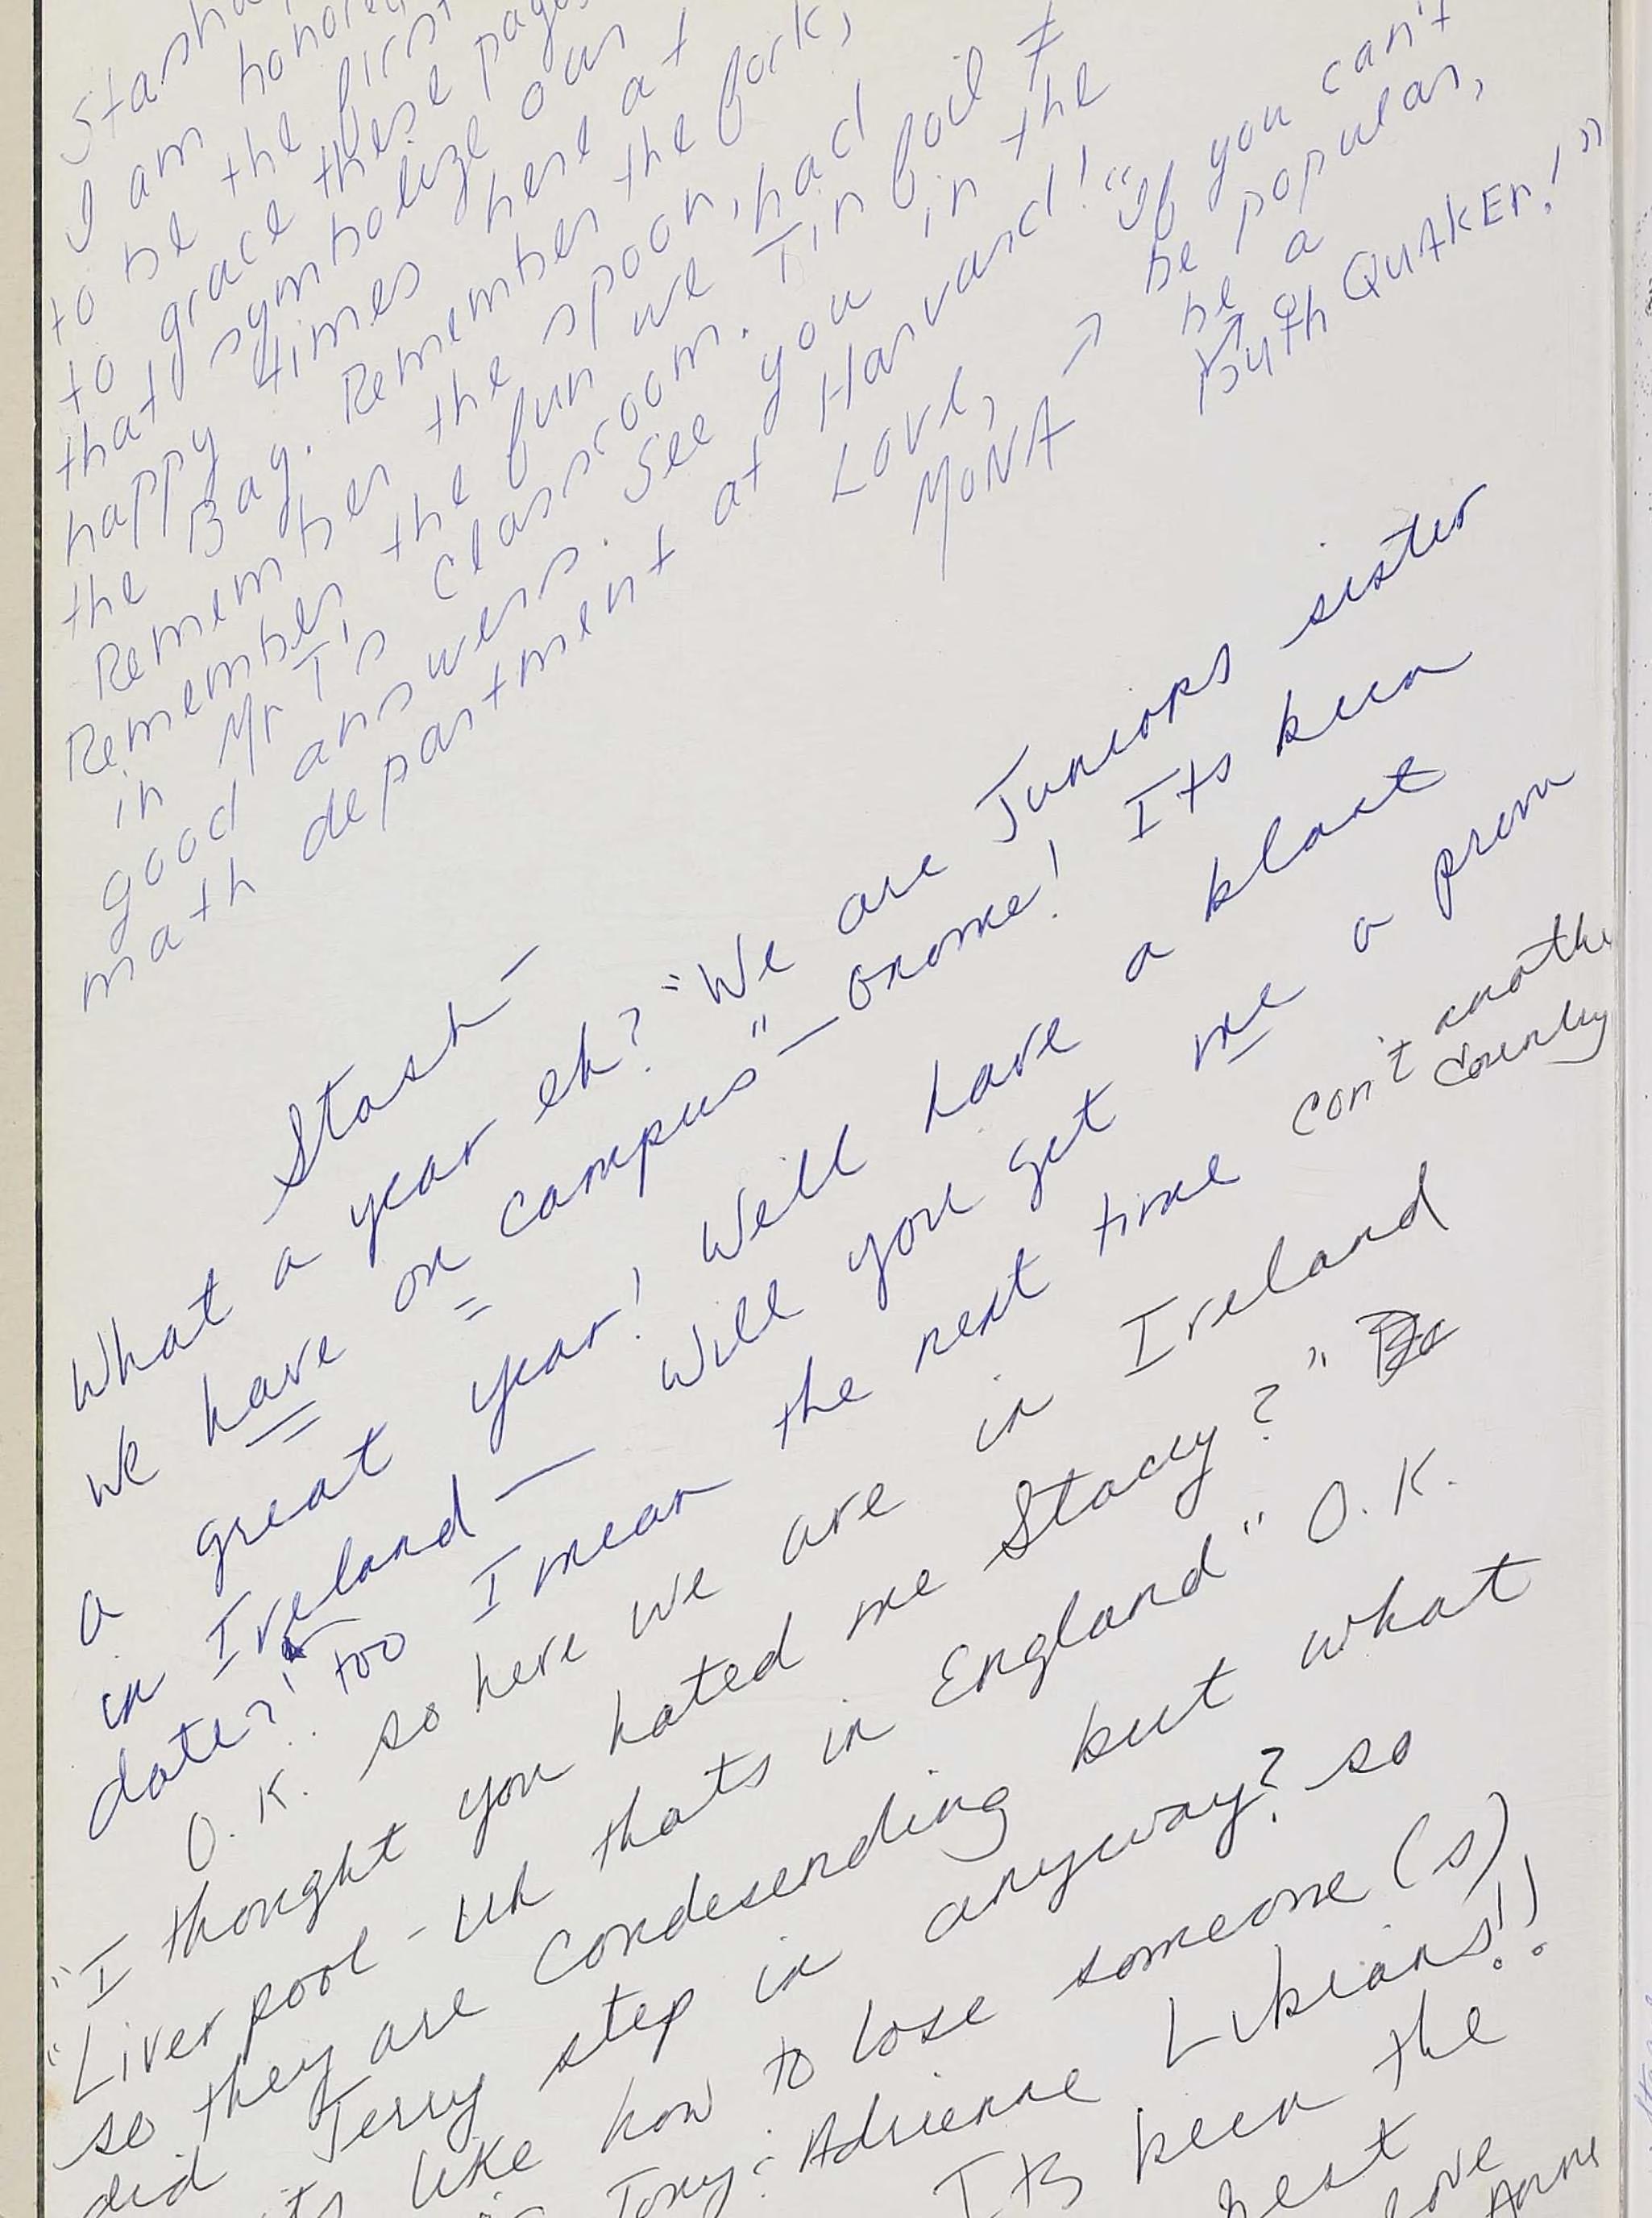 Stasha,
I am honored
to be the first
to grace these pages
that symbolize our
happy times here at
the Bay. Remember the fork,
Remember the spoon, had
Remember the fun we Tin foil ≠
in Mr T's classroom. in the
good answers. See you
math department at Harvard!
Love,
MONA → "If you can't
be popular,
be a
QUAKEr!"
Stash —
What a year eh? "We are Juniors sister
we have on campus" — onome! Its been
a great year! Well have a blast
in Ireland — Will you get me a prom
date?! too I mean the next time con't another
country
O.K. so here we are in Ireland
"I thought you hated me Stacey?"
"Liverpool - uh thats in England" O.K.
so they are Condesending but what
did Terry step in anyway? so
like how to lose someone (s)
Tony: Adrienne Libeians!!
Its been the
best
love
Anne